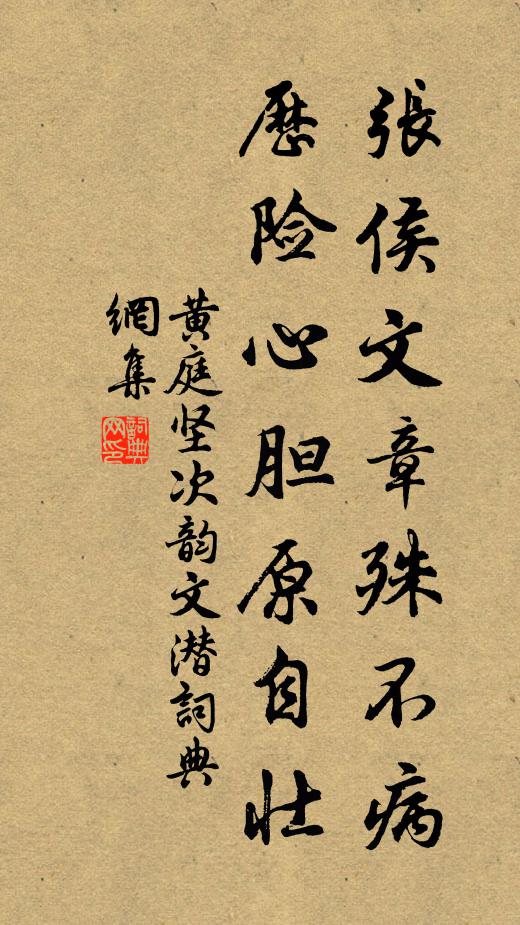 張侯文章殊不病
歷险心胆原自壮
黄庭坚次韵文潜詞典
網集
詞典
网印